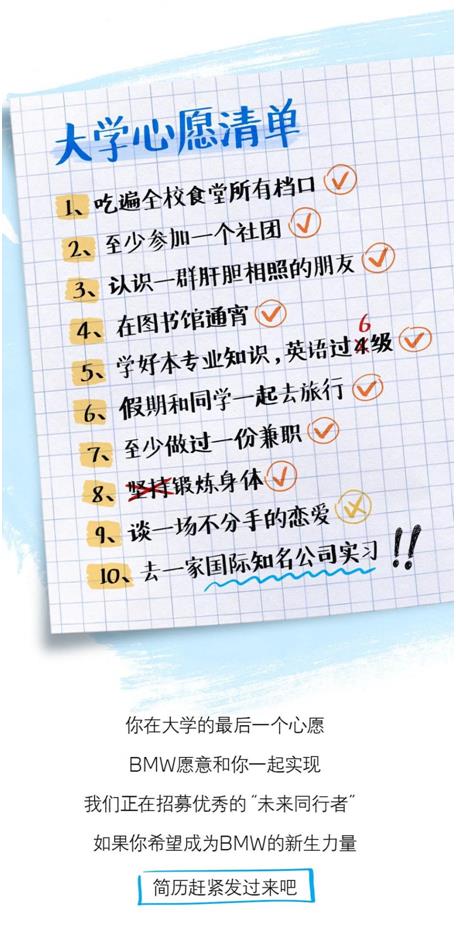 大学心愿清单
1、吃遍全校食堂所有档口
2、至少参加一个社团
3、认识一群肝胆相照的朋友
4、在图书馆通宵
6
5、学好本专业知识，英语过4级
6、假期和同学一起去旅行
7、至少做过一份兼职
8、坚持锻炼身体
9、谈一场不分手的恋爱
10、去一家国际知名公司实习!!
你在大学的最后一个心愿
BMW愿意和你一起实现
我们正在招募优秀的“未来同行者”
如果你希望成为BMW的新生力量
简历赶紧发过来吧